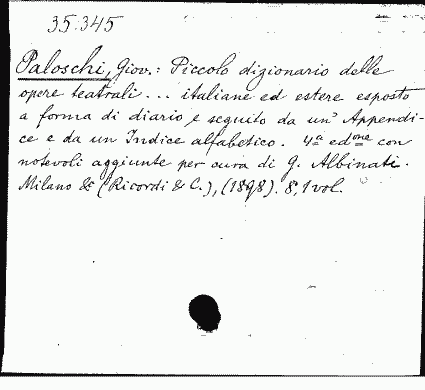 35.345
Paloschi, Giov.: Piccolo dizionario delle
opere teatrali ... italiane ed estere esposto
a forma di diario e seguito da un' Appendi-
ce e da un Indice alfabetico. 4a edone con
notevoli aggiunte per cura di G. Albinati.
Milano &c (Ricordi & C.), (1898). 8, 1 vol.